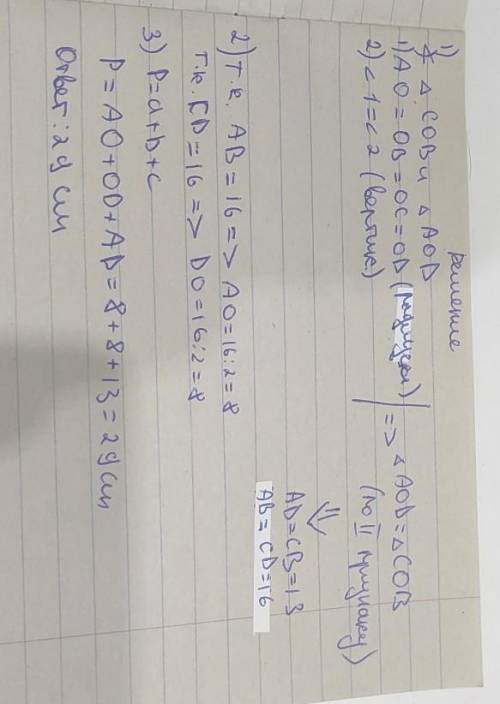 Решение
1) ∡ △ COB и △ AOD
1) AO = OB = OC = OD (радиусы)
2) < 1 = < 2 (вертик.)
=> △ AOD = △ COB
(по II признаку)
⇓
AD = CB = 13
AB = CD = 16
2) т.к. AB = 16 => AO = 16:2 = 8
т.к. CD = 16 => DO = 16:2 = 8
3) P = a + b + c
P = AO + OD + AD = 8 + 8 + 13 = 29 см
Ответ: 29 см